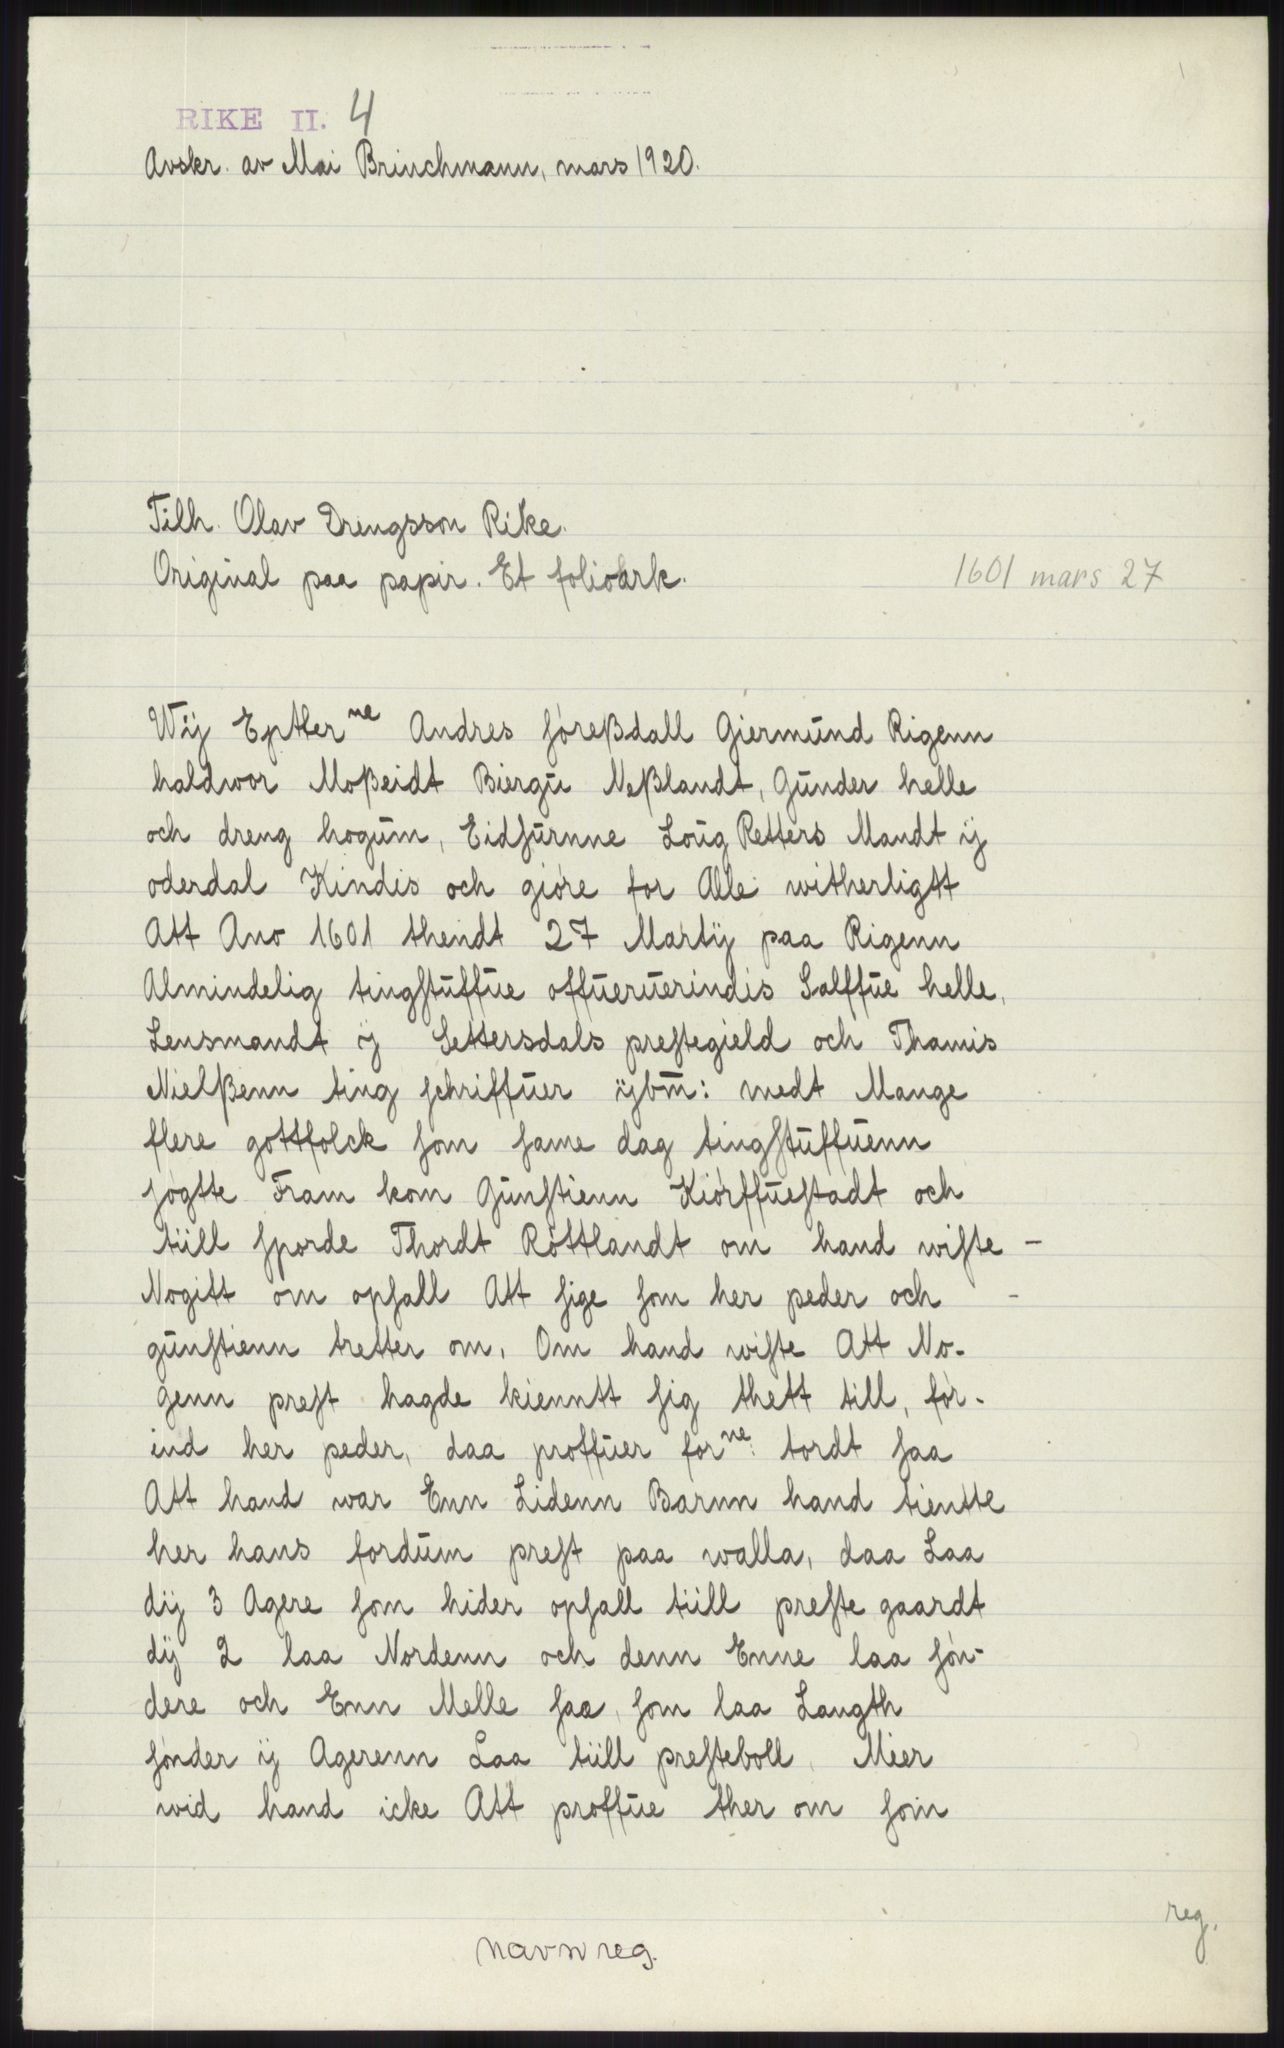 RIKE II. 4
Avskr. av Mai Brinchmann, mars 1920.
Tilh. Olav Drengsson Rike.
Original paa papir. Et folioark.
1601 mars 27
Wij Epther ne Andres ſoreßdall Giermund Rigenn
haldwor Moßeidt Biergu Neßlandt, Gunder helle
och dreng hogum, Eidſurnne Loug Retters Mandt ij
oderdal Kindis och giøre for Alle witherligtt
Att Ano 1601 thendt 27 Martij paa Rigenn
Almindelig tingſtuffue offueruerindis Salffue helle,
Lensmandt ij Settersdals preſtegield och Thamis
Nielßenn ting ſchriffuer ijbm̄: medt Mange
flere gottfolck ſom ſame dag tingſtuffuenn
ſøgtte Fram kom Gunſtienn Kiørffueſtadt och
tiill ſporde Thordt Røttlandt om hand wiſte –
Nogitt om opſall Att ſige ſom her peder och –
gunſtienn tretter om, Om hand wiſte Att No-
genn preſt hagde kienntt ſig thett till, før-
ind her peder, daa proffuer forne: tordt ſaa
Att hand war Enn Lidenn Barnn hand tientte
her hans fordum preſt paa walla, daa Laa
dij 3 Agere ſom hider opſall tiill preſte gaardt
dij 2 laa Nordenn och denn Enne laa ſøn-
dere och Enn Melle ſaa, ſom laa Langth
ſønder ij Agerenn Laa tiill preſteboll, Meer
wid hand icke Att proffue ther om ſom
reg.
navnreg.